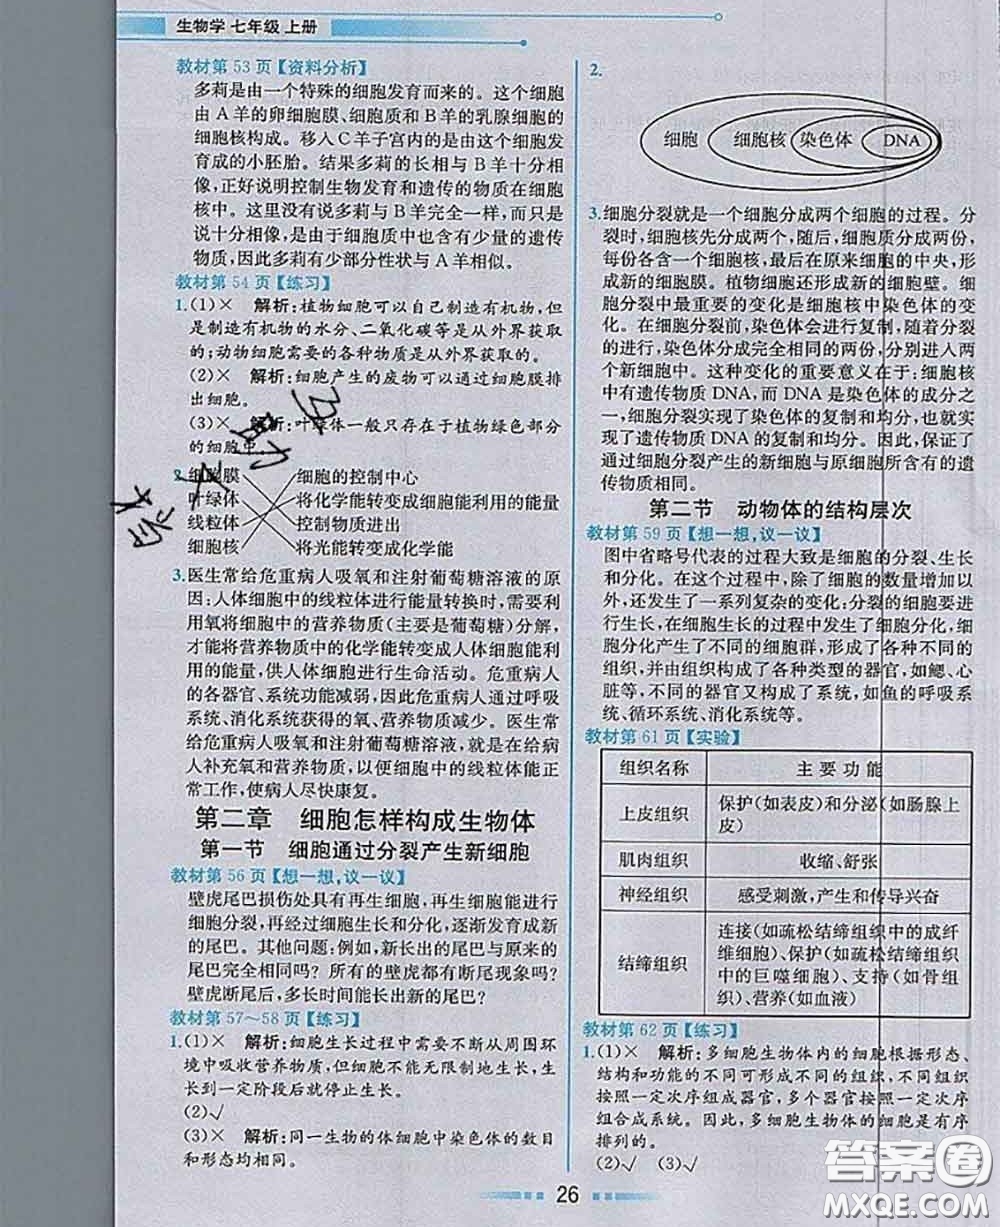 生物学 七年级 上册
教材第 53 页【资料分析】
多莉是由一个特殊的细胞发育而来的。这个细胞
由 A 羊的卵细胞膜、细胞质和 B 羊的乳腺细胞的
细胞核构成。移入 C 羊子宫内的是由这个细胞发
育成的小胚胎。结果多莉的长相与 B 羊十分相
像,正好说明控制生物发育和遗传的物质在细胞
核中。这里没有说多莉与 B 羊完全一样,而只是
说十分相像,是由于细胞质中也含有少量的遗传
物质,因此多莉有少部分性状与 A 羊相似。
教材第 54 页【练习】
1.(1)× 解析:植物细胞可以自己制造有机物,但
是制造有机物的水分、二氧化碳等是从外界获取
的;动物细胞需要的各种物质是从外界获取的。
(2)× 解析:细胞产生的废物可以通过细胞膜排
出细胞。
(3)× 解析:叶绿体一般只存在于植物绿色部分
的细胞
2.细胞膜 细胞的控制中心
叶绿体 将化学能转变成细胞能利用的能量
线粒体 控制物质进出
细胞核 将光能转变成化学能
3.医生常给危重病人吸氧和注射葡萄糖溶液的原
因:人体细胞中的线粒体进行能量转换时,需要利
用氧将细胞中的营养物质(主要是葡萄糖)分解,
才能将营养物质中的化学能转变成人体细胞能利
用的能量,供人体细胞进行生命活动。危重病人
的各器官、系统功能减弱,因此危重病人通过呼吸
系统、消化系统获得的氧、营养物质减少。医生常
给危重病人吸氧和注射葡萄糖溶液,就是在给病
人补充氧和营养物质,以便细胞中的线粒体能正
常工作,使病人尽快康复。
第二章 细胞怎样构成生物体
第一节 细胞通过分裂产生新细胞
教材第 56 页【想一想,议一议】
壁虎尾巴损伤处具有再生细胞,再生细胞能进行
细胞分裂,再经过细胞生长和分化,逐渐发育成新
的尾巴。其他问题:例如,新长出的尾巴与原来的
尾巴完全相同吗? 所有的壁虎都有断尾现象吗?
壁虎断尾后,多长时间能长出新的尾巴?
教材第 57～58 页【练习】
1.(1)× 解析:细胞生长过程中需要不断从周围环
境中吸收营养物质,但细胞不能无限制地生长,生
长到一定阶段后就停止生长。
(2)√
(3)× 解析:同一生物的体细胞中染色体的数目
和形态均相同。
2.
细胞 细胞核 染色体 DNA
3.细胞分裂就是一个细胞分成两个细胞的过程。分
裂时,细胞核先分成两个,随后,细胞质分成两份,
每份各含一个细胞核,最后在原来细胞的中央,形
成新的细胞膜。植物细胞还形成新的细胞壁。细
胞分裂中最重要的变化是细胞核中染色体的变
化。在细胞分裂前,染色体会进行复制,随着分裂
的进行,染色体分成完全相同的两份,分别进入两
个新细胞中。这种变化的重要意义在于:细胞核
中有遗传物质 DNA,而 DNA 是染色体的成分之
一,细胞分裂实现了染色体的复制和均分,也就实
现了遗传物质 DNA 的复制和均分。因此,保证了
通过细胞分裂产生的新细胞与原细胞所含有的遗
传物质相同。
第二节 动物体的结构层次
教材第 59 页【想一想,议一议】
图中省略号代表的过程大致是细胞的分裂、生长
和分化。在这个过程中,除了细胞的数量增加以
外,还发生了一系列复杂的变化:分裂的细胞要进
行生长,在细胞生长的过程中发生了细胞分化,细
胞分化产生了不同的细胞群,形成了各种不同的
组织,并由组织构成了各种类型的器官,如鳃、心
脏等,不同的器官又构成了系统,如鱼的呼吸系
统、循环系统、消化系统等。
教材第 61 页【实验】
组织名称 主 要 功 能
上皮组织 保护(如表皮)和分泌(如肠腺上
皮)
肌肉组织 收缩、舒张
神经组织 感受刺激,产生和传导兴奋
结缔组织 连接(如疏松结缔组织中的成纤
维细胞)、保护(如疏松结缔组织
中的巨噬细胞)、支持(如骨组
织)、营养(如血液)
教材第 62 页【练习】
1.(1)× 解析:多细胞生物体内的细胞根据形态、
结构和功能的不同可形成不同的组织,不同组织
按照一定次序组成器官,多个器官按照一定次序
组合成系统。因此,多细胞生物体的细胞是有序
排列的。
(2)√ (3)√
26
答案圈
MXQE.COM